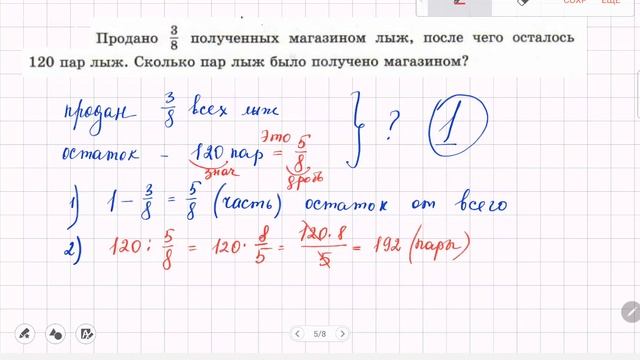 Продано 3/8 полученных магазином лыж, после чего осталось
120 пар лыж. Сколько пар лыж было получено магазином?
продан 3/8 всех лыж
остаток – 120 пар = 5/8
Это
знач
дробь
? 1
1) 1 - 3/8 = 5/8 (часть) остаток от всего
2) 120 : 5/8 = 120 · 8/5 = 120·8/5 = 192 (пары)
5/8